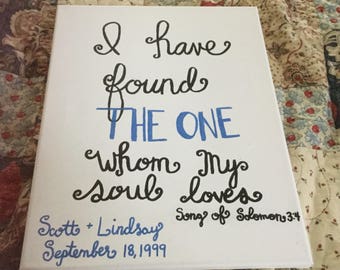 I have
found
THE ONE
whom My
soul loves
Song of Solomon 3:4
Scott + Lindsay
September 18, 1999